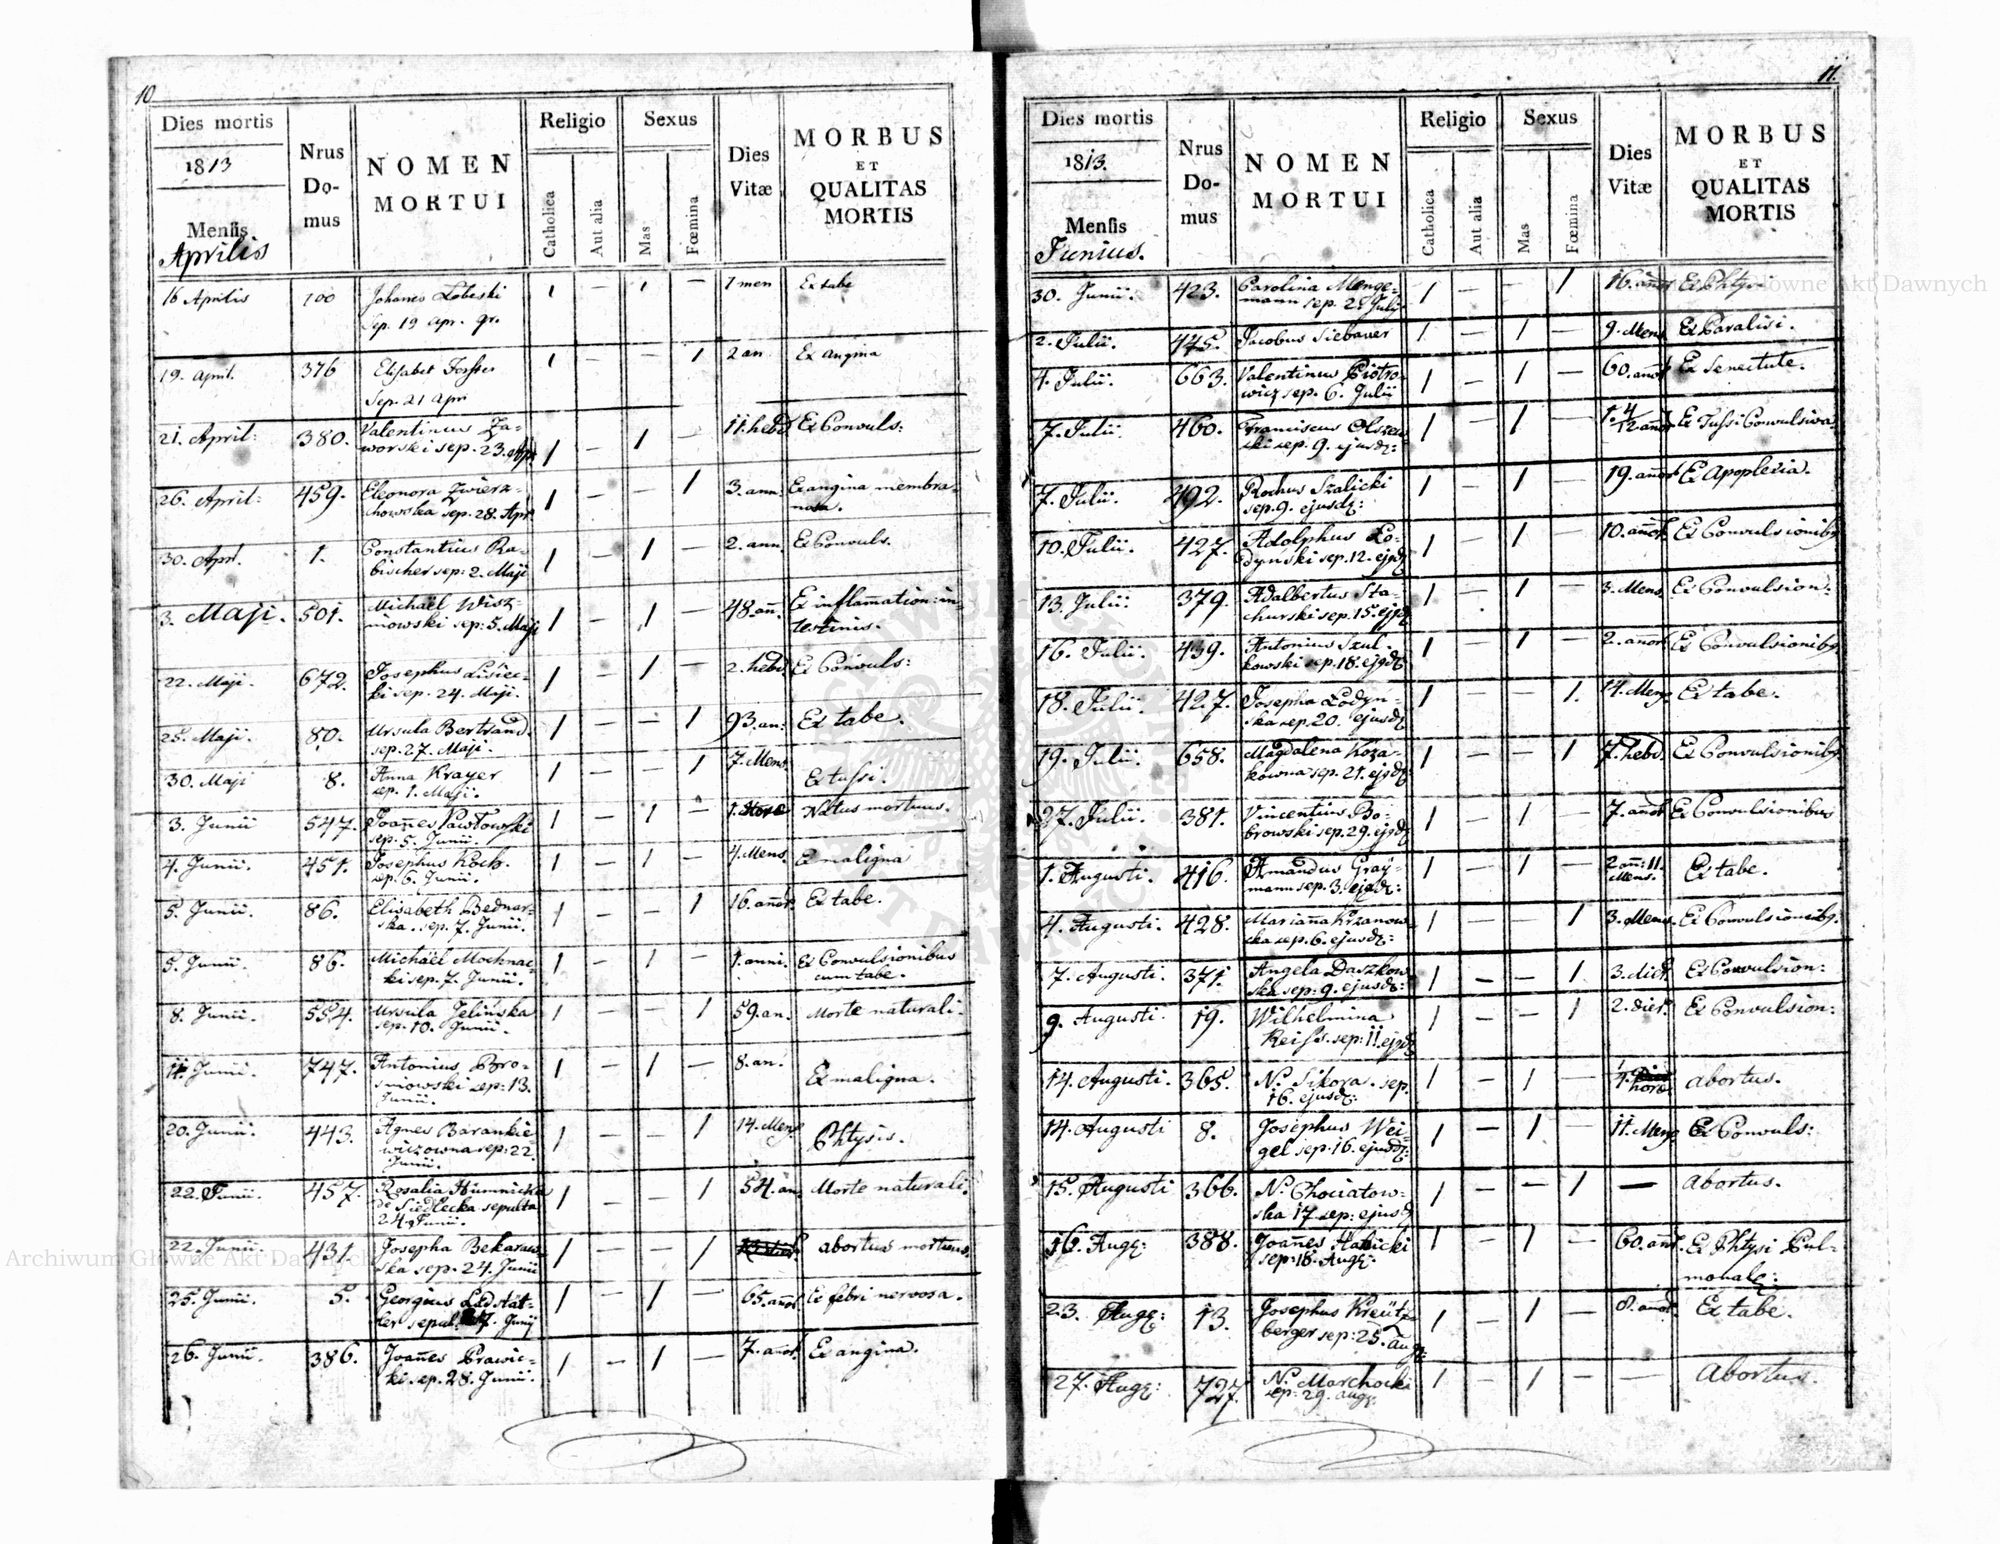 10.
Dies mortis
1813
Mensis
Aprilis
Nrus
Do-
mus
NOMEN
MORTUI
Religio
Catholica
Aut alia
Sexus
Mas
Fœmina
Dies
Vitæ
MORBUS
ET
QUALITAS
MORTIS
16 Aprilis 100 Johanes Lobeski 1 – 1 – 7 men Ex tabe
Sep. 19 apr. gr.
19. April. 376 Elisabet 1 – – 1 2 an Ex angina
Sep. 21 Apr
21. April: 380. Valentinus Za- 1 – 1 – 11. hebd Ex Convuls:
worski sep. 23. Apr
26. April: 459. Eleonora Zwierz- 1 – – 1 3. ann. Ex angina membra-
chowska sep. 28. Apr. nosa.
30. Apr. 1. Constantius Ra- 1 – 1 – 2. ann. Ex Convuls.
bischer sep: 2. Maji
3. Maji. 501. Michaël Wisz- 1 – 1 – 48. añ. Ex inflamation: in-
niowski sep: 5. Maji testinis.
22. Maji. 672. Josephus Lisiec- 1 – 1 – 2. hebd. Ex Convuls:
ki sep. 24. Maji.
25. Maji. 80. Ursula Bertrand. 1 – – 1 93. an: Ex tabe.
sep. 27. Maji.
30. Maji 8. Anna Krayer 1 – – 1 7. Mens. Ex tussi.
sep. 1. Maji.
3. Junii 547. Joañes Pawłowski 1 – 1 – 1. Natus mortuus.
sep. 5. Junii.
4. Junii. 451. Josephus Koch. 1 – 1 – 4. Mens. Ex maligna
sep. 6. Junii.
5. Junii. 86. Elisabeth Bednar- 1 – – 1 16. añor. Ex tabe.
ska. sep. 7. Junii.
5. Junii. 86. Michaël Mochnac- 1 – 1 – 1. anni. Ex Convulsionibus
ki sep. 7. Junii. cum tabe.
8. Junii. 554. Ursula Jelińska 1 – – 1 59. an. Morte naturali.
sep. 10. Junii.
11. Junii. 747. Antonius Bro- 1 – 1 – 8. an. Ex maligna.
sniowski sep: 13.
Junii.
20. Junii. 443. Agnes Barankie- 1 – – 1 14. Mens Phtysis.
wiczowna sep: 22
Junii.
22. Junii. 457. Rosalia Humnicka 1 – – 1 54. an. Morte naturali.
de Siedlecka sepulta
24. Junii.
22. Junii 431. Josepha Bekaraw- 1 – – 1 abortus mortuus.
ska sep. 24. Junii
25. Junii. 5. Georgius Ladstät- 1 – 1 – 65. añor Ex febri nervosa.
ter sepul. 27. Junij
26. Junii. 386. Joañes Prawic- 1 – 1 – 7. añor. Ex angina.
ki sep. 28. Junii.
11.
Dies mortis
1813.
Mensis
Junius.
Nrus
Do-
mus
NOMEN
MORTUI
Religio
Catholica
Aut alia
Sexus
Mas
Fœmina
Dies
Vitæ
MORBUS
ET
QUALITAS
MORTIS
30. Junii. 423. Carolina Menge- 1 – – 1 16. añor Ex Phtysi.
mann sep. 2. Julij
2. Julii. 445. Jacobus Siebauer 1 – 1 – 9. Mens. Ex Paralisi.
4. Julii. 663. Valentinus Piotro- 1 – 1 – 60. añor Ex Senectute.
wicz sep. 6. Julii
7. Julii. 460. Franciscus Olszew- 1 – 1 1. 4/12 anor Ex Tussi Convulsiva
ski sep. 9. ejusdz:
7. Julii. 492. Rochus Szalicki 1 – 1 – 19. anor Ex Apoplexia.
sep. 9. ejusdz:
10. Julii. 427. Adolphus Ło- 1 – 1 – 10. añor. Ex Convulsionibg
dyński sep. 12. ejgdz
13. Julii. 379. Adalbertus Sta- 1 – 1 – 3. Mens. Ex Convulsion:
churski sep. 15. ejgdz
16. Julii. 439. Antonius Szul- 1 – 1 – 2. añor Ex Convulsionibg.
kowski sep. 18. ejgdz
18. Julii. 427. Josepha Łodyń- 1 – – 1. 14. Meng Ex tabe.
ska sep. 20. ejusdz
19. Julii. 658. Magdalena Koza- 1 – – 1 7. hebd. Ex Convulsionibg.
kowna sep. 21. ejgdz
27. Julii. 381. Vincentius Bo- 1 – 1 – 7. añor Ex Convulsionibus
browski sep. 29. ejgdz
1. Augusti. 416. Amandus Gray- 1 – 1 – 2 añ: 11. Ex tabe.
mann sep. 3. ejgdz: Mens.
4. Augusti. 428. Mariaña Krzanow- 1 – – 1 3. Mens. Ex Convulsionibg.
ska sep. 6. ejusdz:
7. Augusti. 371. Angela Daszkow- 1 – – 1. 3. dier. Ex Convulsion:
ska sep: 9. ejusdz:
9. Augusti. 19. Wilhelmina 1 – – 1 2. dier. Ex Convulsion:
Reiss. sep: 11. ejgdz
14. Augusti. 365. N. Sikora. sep. 1 – 1 – 4. abortus.
16. ejusdz: horæ.
14. Augusti 8. Josephus Wei- 1 – 1 – 11. Meng Ex Convuls:
gel sep. 16. ejusdz:
15. Augusti 366. N. Chociatow- 1 – – 1 — Abortus.
ska 17 sep: ejusdz
16. Augq: 388. Joañes Halicki 1 – 1 – 60. añor. Ex Phtysi Pul-
sep: 18. Augq: monalz:
23. Augq: 13. Josephus Kreütz- 1 – 1 – 8. añor. Ex tabe.
berger sep: 25. Augq:
27. Augq: 727. N. Marchocki 1 – 1 – — Abortus.
sep: 29. augq.
Archiwum Główne Akt Dawnych